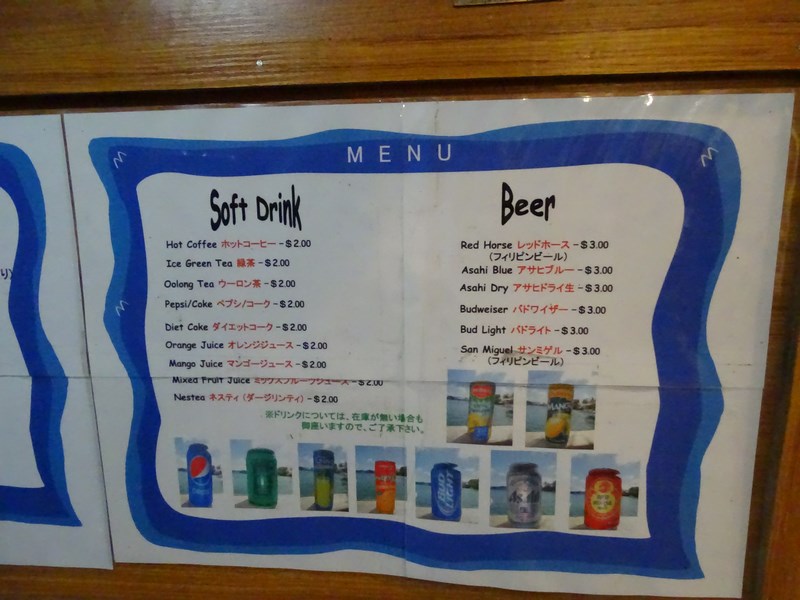 MENU
Soft Drink
Hot Coffee ホットコーヒー - $2.00
Ice Green Tea 緑茶 - $2.00
Oolong Tea ウーロン茶 - $2.00
Pepsi/Coke ペプシ/コーク - $2.00
Diet Coke ダイエットコーク - $2.00
Orange Juice オレンジジュース - $2.00
Mango Juice マンゴージュース - $2.00
Mixed Fruit Juice ミックスフルーツジュース - $2.00
Nestea ネスティ (ダージリンティ) - $2.00
※ドリンクについては、在庫が無い場合も
御座いますので、ご了承下さい。
Beer
Red Horse レッドホース - $3.00
(フィリピンビール)
Asahi Blue アサヒブルー - $3.00
Asahi Dry アサヒドライ生 - $3.00
Budweiser バドワイザー - $3.00
Bud Light バドライト - $3.00
San Miguel サンミゲル - $3.00
(フィリピンビール)
MANGO
BUD LIGHT
Asahi